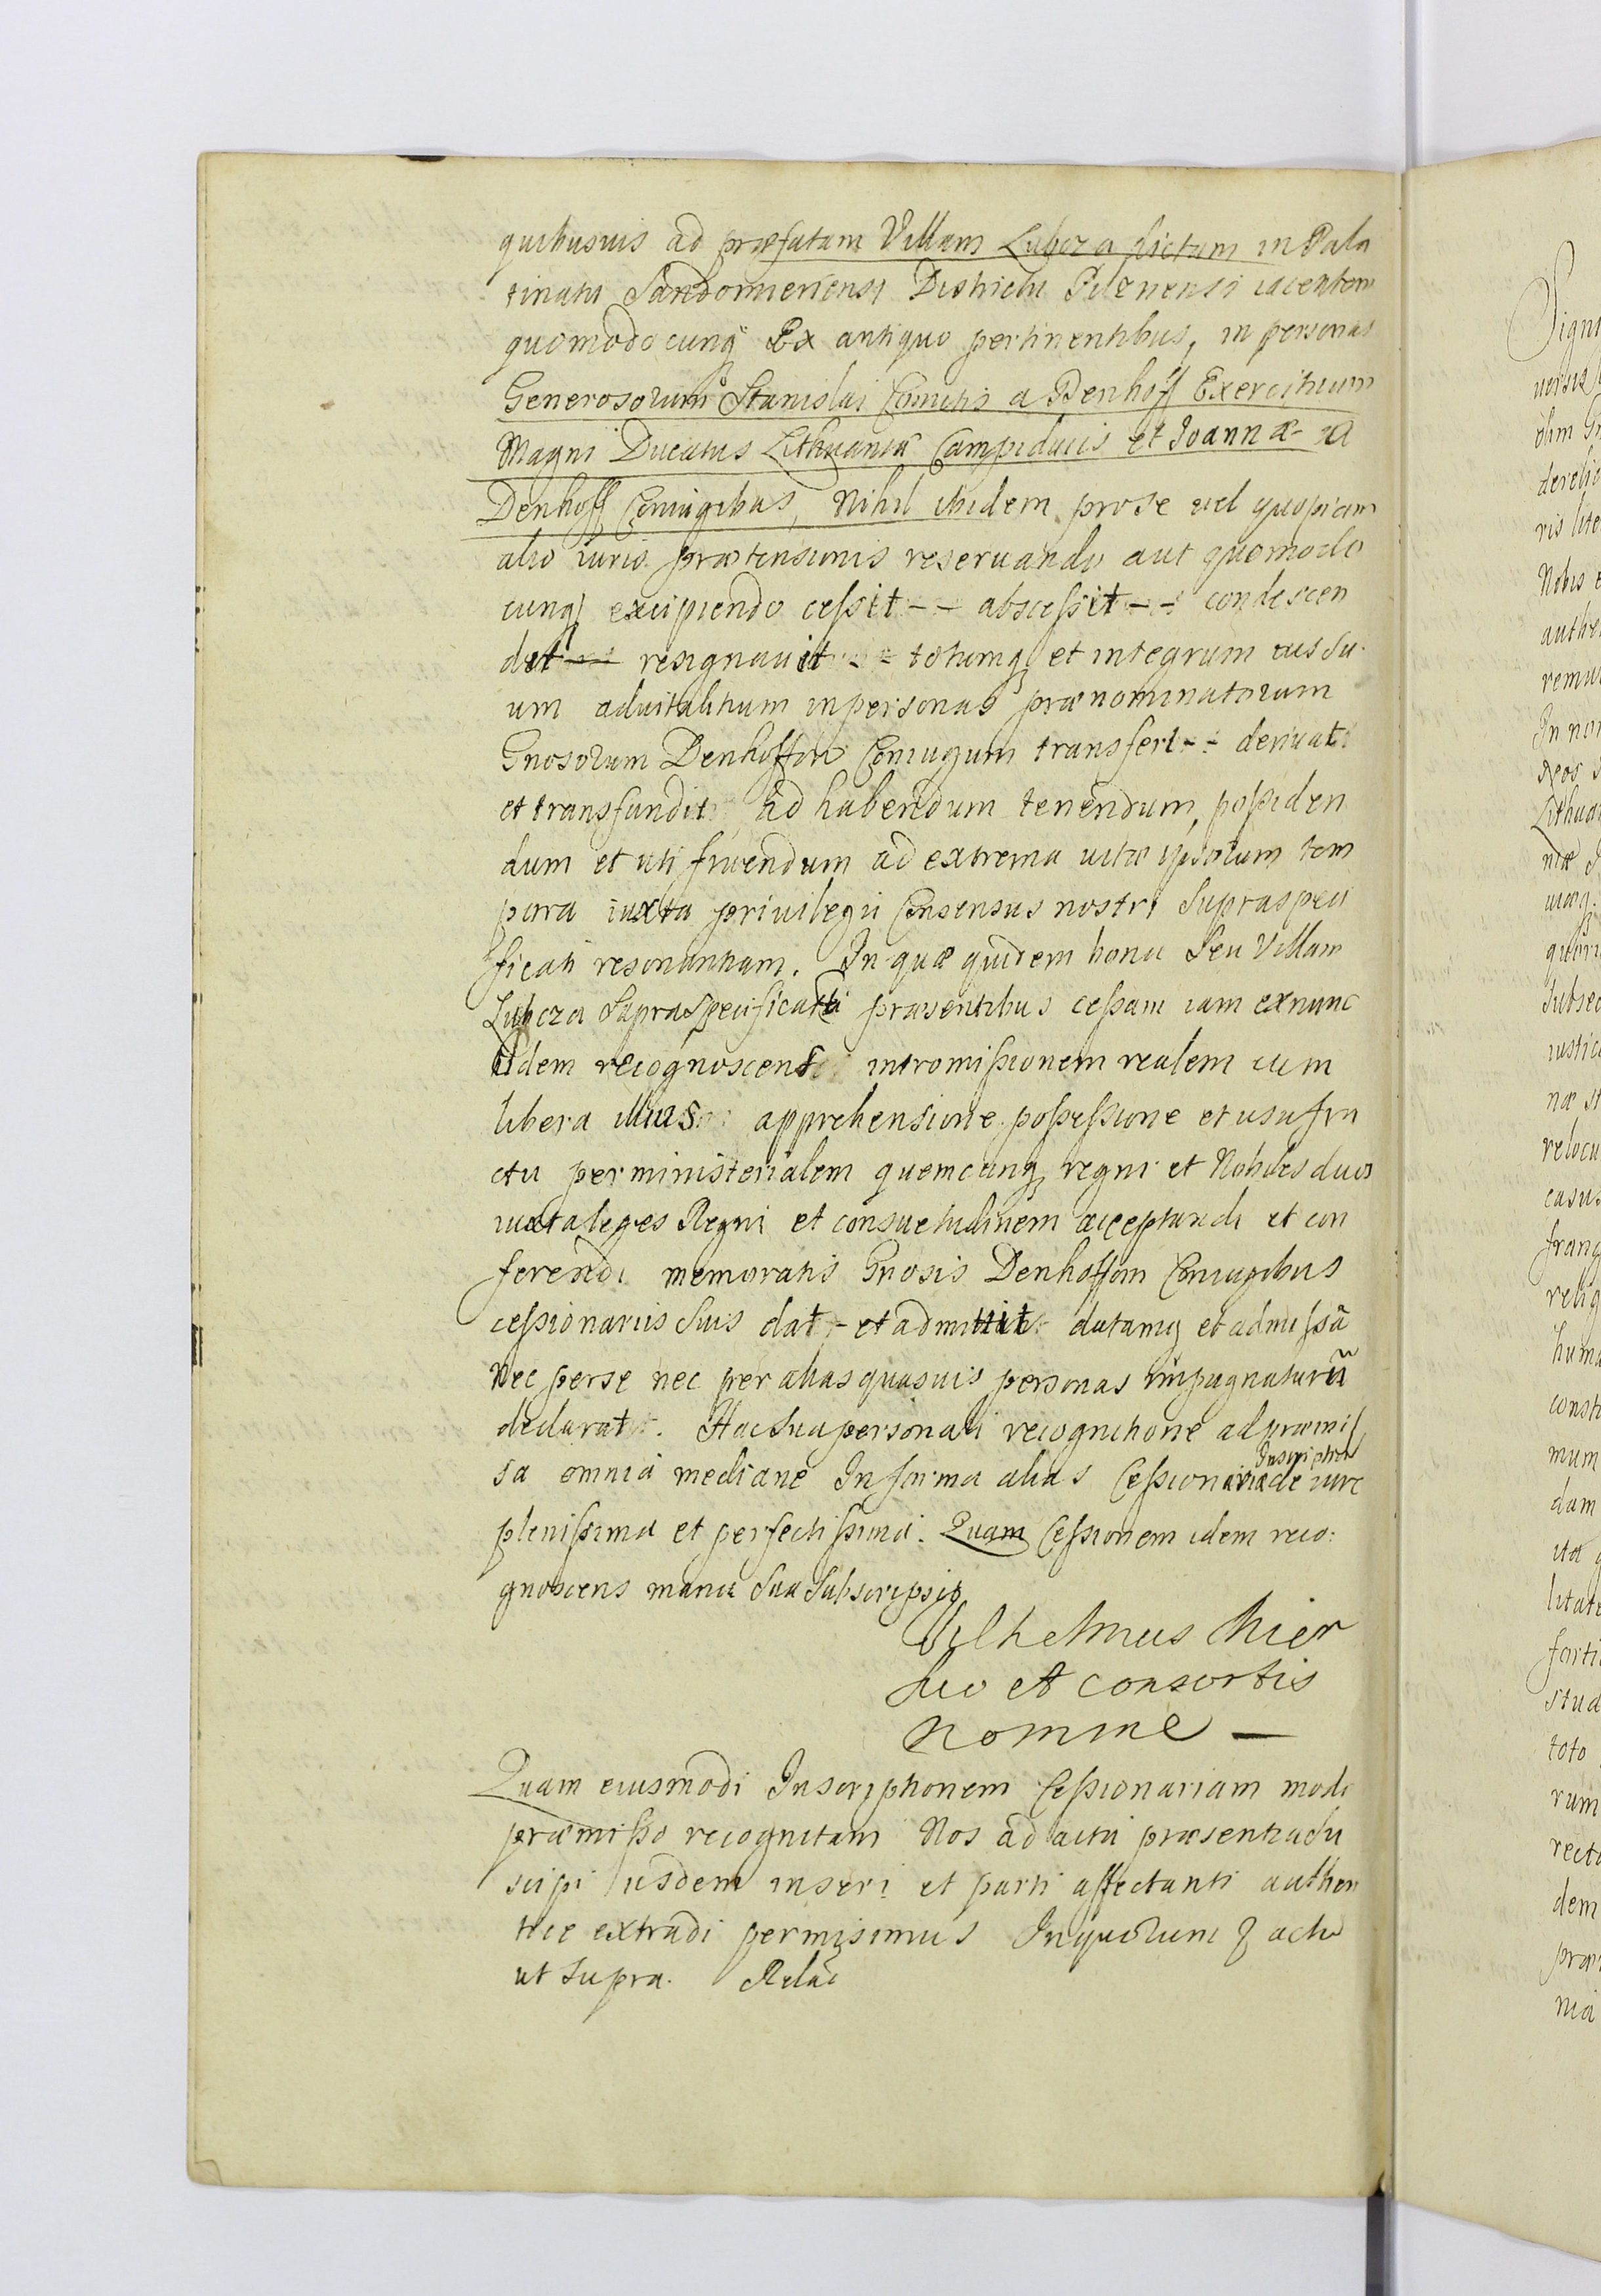 quibusuis ad præfatam Villam Lubcza dictam in Pala
tinatu Sandomiriensi Districtu Pilznensi iacentem
quomodocunq̃ Ex antiquo pertinentibus, in personas
Generosorum Stanislai Comitis a Denhoff Exercituum
Magni Ducatus Lithuaniæ Campiducis et Joannæ a
Denhoff Coniugibus, Nihil ibidem pro se vel quopiam
alio iuris prætensionis reseruando aut quomodo
cunq̃ excipiendo cessit -- abscessit -- condescen
dit -- resignauit -- totumq̃ et integrum ius su
um aduitalitium in personas prænominatorum
Gnosorum Denhoffów Coniugum transfert -- deriuat
et transfundit ad habendum tenendum, possiden
dum et uti fruendum ad extrema vitæ ipsorum tem
pora iuxta priuilegii Consensus nostri supraspeci
ficati resonantiam. In quæ quidem bona seu Villam
Lubcza supraspecificata præsentibus cessam iam exnunc
idem recognoscens intromissionem realem cum
libera illius apprehensione possessione et usufru
ctu per ministerialem quemcunq̃ regni et Nobiles duos
iuxta leges Regni et consuetudinem acceptandi et con
ferendi memoratis Gnosis Denhoffom Coniugibus
cessionariis suis dat -- et admittit datamq̃ et admissã
nec per se nec per alias quasuis personas impugnaturũ
declarat. Hac sua personali recognitione ad præmis
sa omnia mediane In forma alias Cessionariæ Inscriptionis de iure
plenissima et perfectissima. Quam Cessionem idem reco:
gnoscens manu sua subscripsit
Vilhelmus Mier
suo et consortis
nomine —
Quam eiusmodi Inscriptionem Cessionariam modo
præmisso recognitam Nos ad acta præsentia su
scipi iisdem inseri et parti affectanti authen
tice extradi permisimus In quorum &amp; actu
ut supra. Relac